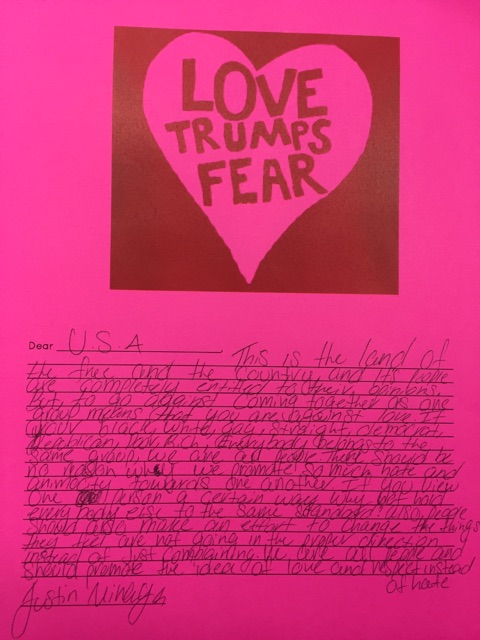 LOVE
TRUMPS
FEAR
Dear U.S.A, This is the land of
the free and the country and its people
are completely entitled to their opinions
But to go against coming together as one
group means that you are against love. If
your black, white, gay, straight, democrat,
Republican, poor, Rich everybody belongs to the
same group, we are all people there should be
no reason we promote so much hate and
animosity towards one another. If you view
one person a certain way why not hold
every body else to the same standard also people
should also make an effort to change the things
they feel are not going in the proper direction
instead of just complaining. We are all people and
should promote the idea of love and respect instead
of hate
Justin